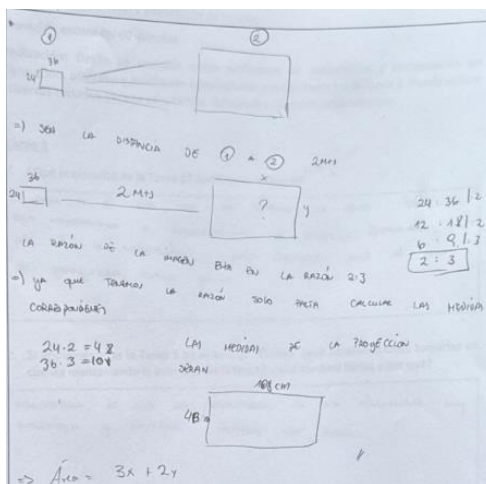 ① ②
36
24
=) SEA LA DISTANCIA DE ① a ② 2Mts
36
24 2 Mts ? x y
24 : 36 | : 2
12 : 18 | : 2
6 : 9 | : 3
2 : 3
LA RAZÓN DE LA IMAGEN ESTA EN LA RAZÓN 2:3
=) YA QUE TENEMOS LA RAZÓN SOLO FALTA CALCULAR LAS MEDIDAS
CORRESPONDIENTES
24 · 2 = 48
36 · 3 = 108
LAS MEDIDAS DE LA PROYECCIÓN
SERAN
108 cm
48
=> Área = 3x + 2y